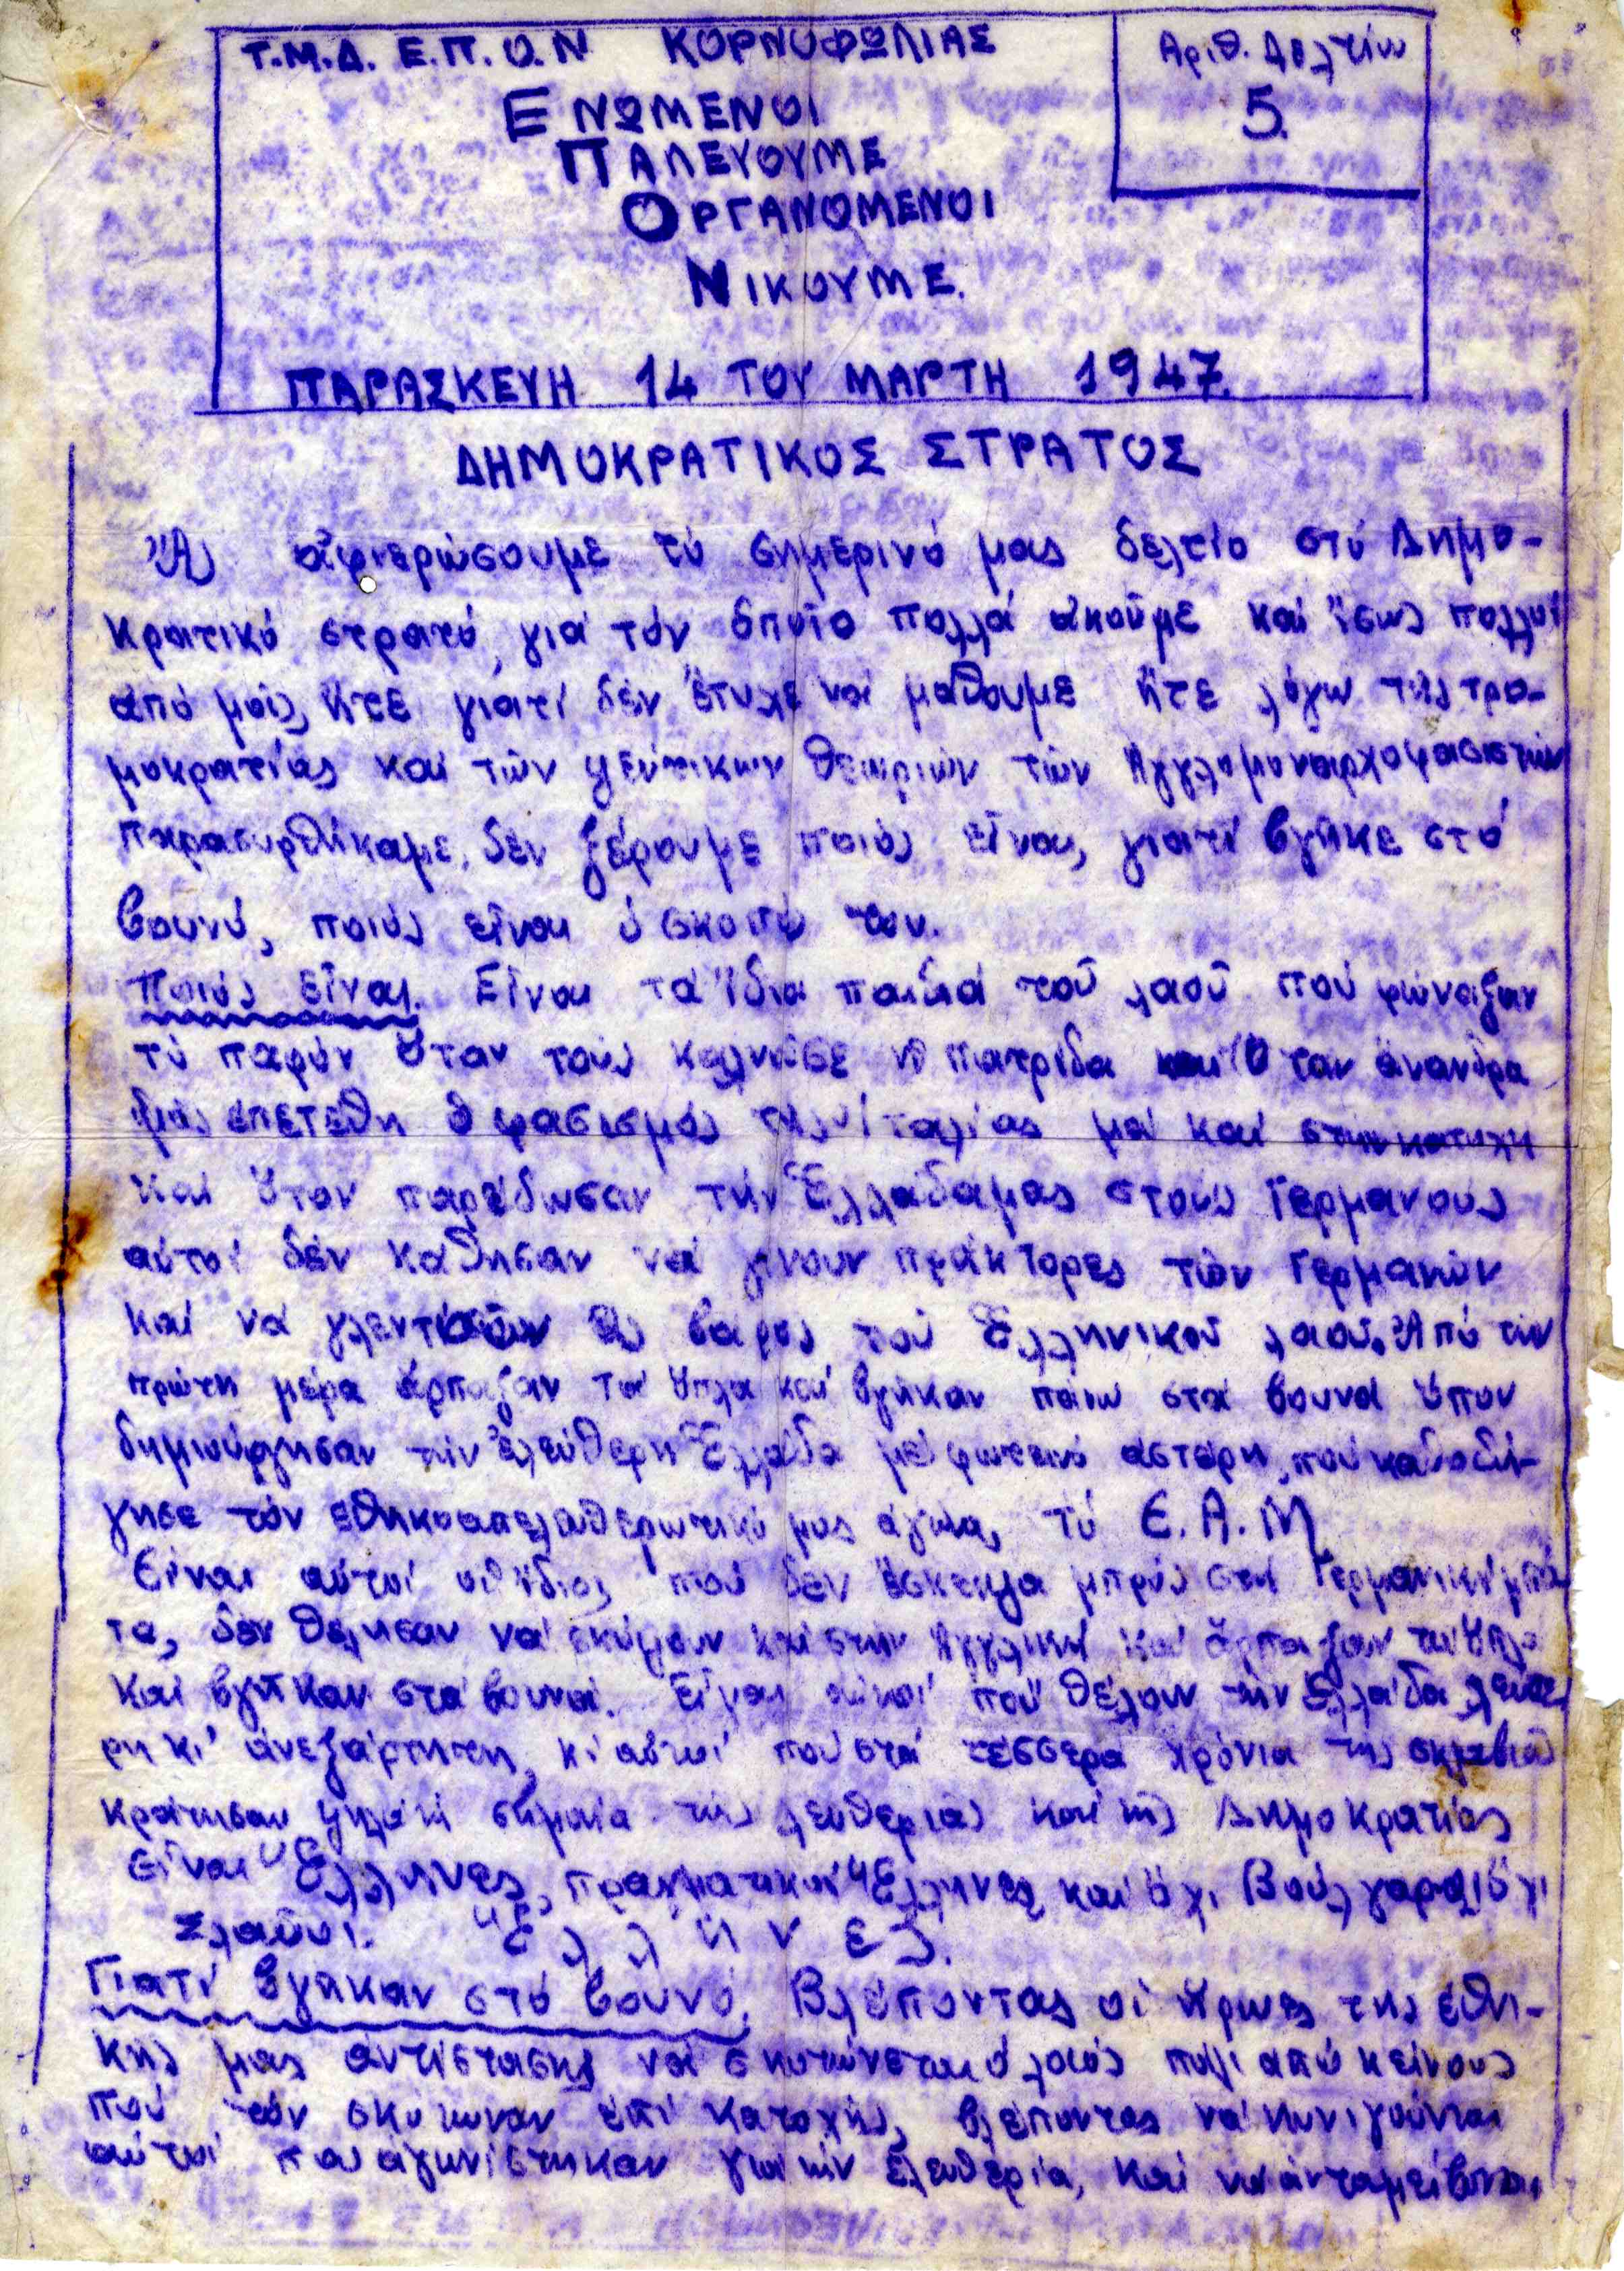 Τ.Μ.Δ. Ε.Π.Ο.Ν ΚΟΡΝΟΦΩΛΙΑΣ
Αριθ. Δελτίου
5.
ΕΝΩΜΕΝΟΙ
ΠΑΛΕΥΟΥΜΕ
ΟΡΓΑΝΟΜΕΝΟΙ
ΝΙΚΟΥΜΕ.
ΠΑΡΑΣΚΕΥΗ 14 ΤΟΥ ΜΑΡΤΗ 1947.
ΔΗΜΟΚΡΑΤΙΚΟΣ ΣΤΡΑΤΟΣ
Ἄς ἀφιερώσουμε τό σημερινό μας δελτίο στό Δημο-
κρατικό στρατό, γιά τόν ὁποῖο πολλά ἀκοῦμε καί ἴσως πολλοί
ἀπό μᾶς ἤτε γιατί δέν ἔτυχε νά μάθουμε ἤτε λόγω τῆς τρο-
μοκρατίας καί τῶν ψεύτικων θεωριῶν τῶν Ἀγγλομοναρχοφασιστῶν
παρασυρθήκαμε, δέν ξέρουμε ποιός εἶναι, γιατί βγῆκε στό
βουνό, ποιός εἶναι ὁ σκοπός του.
Ποιός εἶναι. Εἶναι τά ἴδια παιδιά τοῦ λαοῦ πού φώναξαν
τό παρόν ὅταν τούς καλνοῦσε ἡ πατρίδα καί ὅταν ἄνανδρα
μᾶς ἐπετέθη ὁ φασισμός τῆς Ἰταλίας μά καί στήν κατοχή
καί ὅταν παρέδωσαν τήν Ἑλλάδα μας στούς Γερμανούς
αὐτοί δέν κάθησαν νά γίνουν πράκτορες τῶν Γερμανῶν
καί νά γλεντοῦν εἰς βάρος τοῦ Ἑλληνικοῦ λαοῦ. Ἀπό τήν
πρώτη μέρα ἅρπαξαν τά ὅπλα καί βγῆκαν πάνω στά βουνά ὅπου
δημιούργησαν τήν ἐλεύθερη Ἑλλάδα μέ φωτεινό ἀστέρι, πού καθοδή-
γησε τόν ἐθηκοαπελαθερωτικό μας ἀγώνα, τό Ε.Α.Μ
Εἶναι αὐτοί οἱ ἴδιοι πού δέν ἔσκυψα μπρός στή Γερμανική μπό
τα, δέν θέλησαν νά σκύψουν καί στήν Ἀγγλική καί ἅρπαξαν τά ὅπλα
καί βγῆκαν στά βουνά. Εἶναι αὐτοί πού θέλουν τήν Ἑλλάδα λεύτε
ρη κι' ἀνεξάρτητη, κι' αὐτοί πού στά τέσσερα χρόνια τῆς σκλαβιᾶς
κράτησαν ψηλά τή σημαία τῆς λευθεριᾶς καί τῆς Δημοκρατίας
εἶναι Ἕλληνες, πραγματικοί Ἕλληνες καί ὄχι Βούλγαροι ὄχι
Σλαῦοι. Ἕ λ λ η ν ε ς.
Γιατί βγῆκαν στό βουνό. Βλέποντας οἱ ἥρωες τῆς ἐθνι-
κῆς μας ἀντίστασης νά σκοτώνεται ὁ λαός πάλι ἀπό κείνους
πού τόν σκότωναν ἐπί κατοχῆς, βλέποντας νά κυνιγοῦνται
αὐτοί πού ἀγωνίστηκαν γιά τήν ἐλευθερία, καί νά ἀνταμείβονται